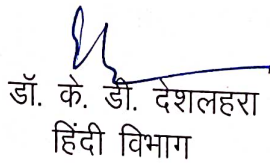 डॉ. के. डी. देशलहरा
हिंदी विभाग